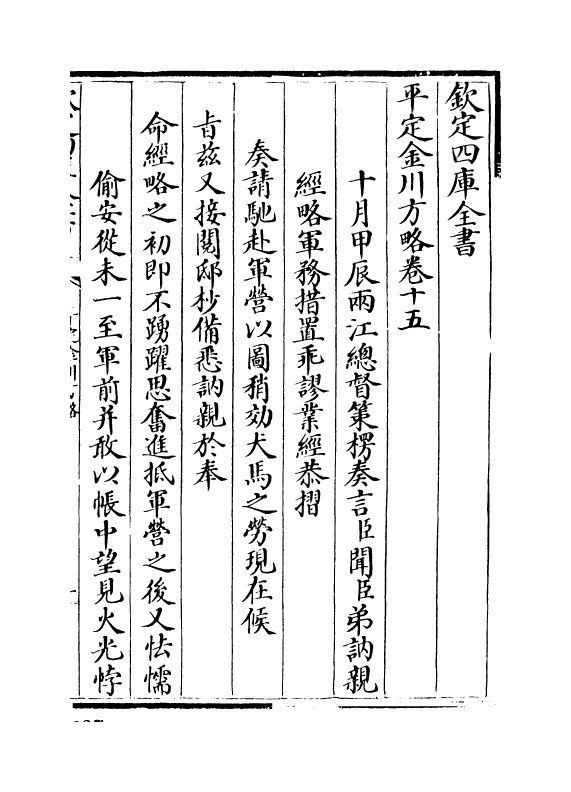 欽定四庫全書
平定金川方略卷十五
十月甲辰兩江總督策楞奏言臣聞臣弟訥親
經略軍務措置乖謬業經恭摺
奏請馳赴軍營以圖稍効犬馬之勞現在候
旨兹又接閱邸抄備悉訥親於奉
命經略之初即不踴躍思奮進抵軍營之後又怯懦
偷安從未一至軍前并敢以帳中望見火光悖